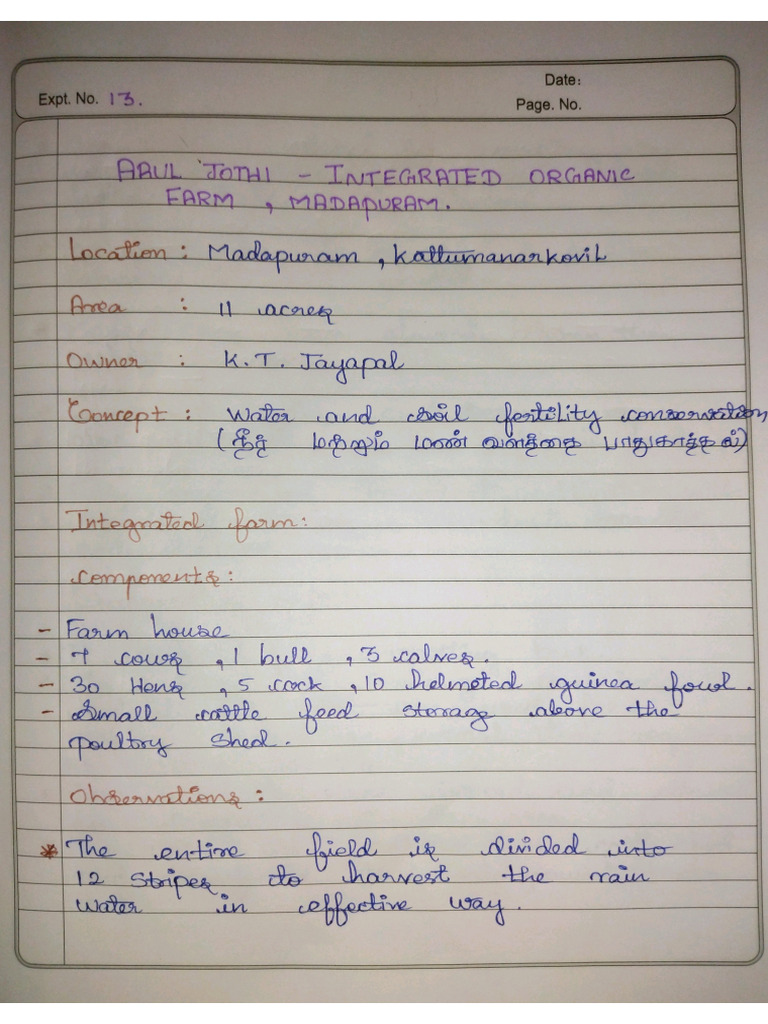 Date:
Expt. No. 13.
Page. No.
ARUL JOTHI - INTEGRATED ORGANIC
FARM, MADAPURAM.
Location : Madapuram, Kattumanarkovil
Area : 11 acres
Owner : K.T. Jayapal
Concept : Water and soil fertility conservation
(நீர் மற்றும் மண் வளத்தை பாதுகாத்தல்)
Integrated farm:
Components:
- Farm house
- 7 cows, 1 bull, 3 calves.
- 30 Hens, 5 cock, 10 helmeted guinea fowl.
- Small cattle feed storage above the
poultry shed.
Observations :
* The entire field is divided into
12 stripes to harvest the rain
water in effective way.